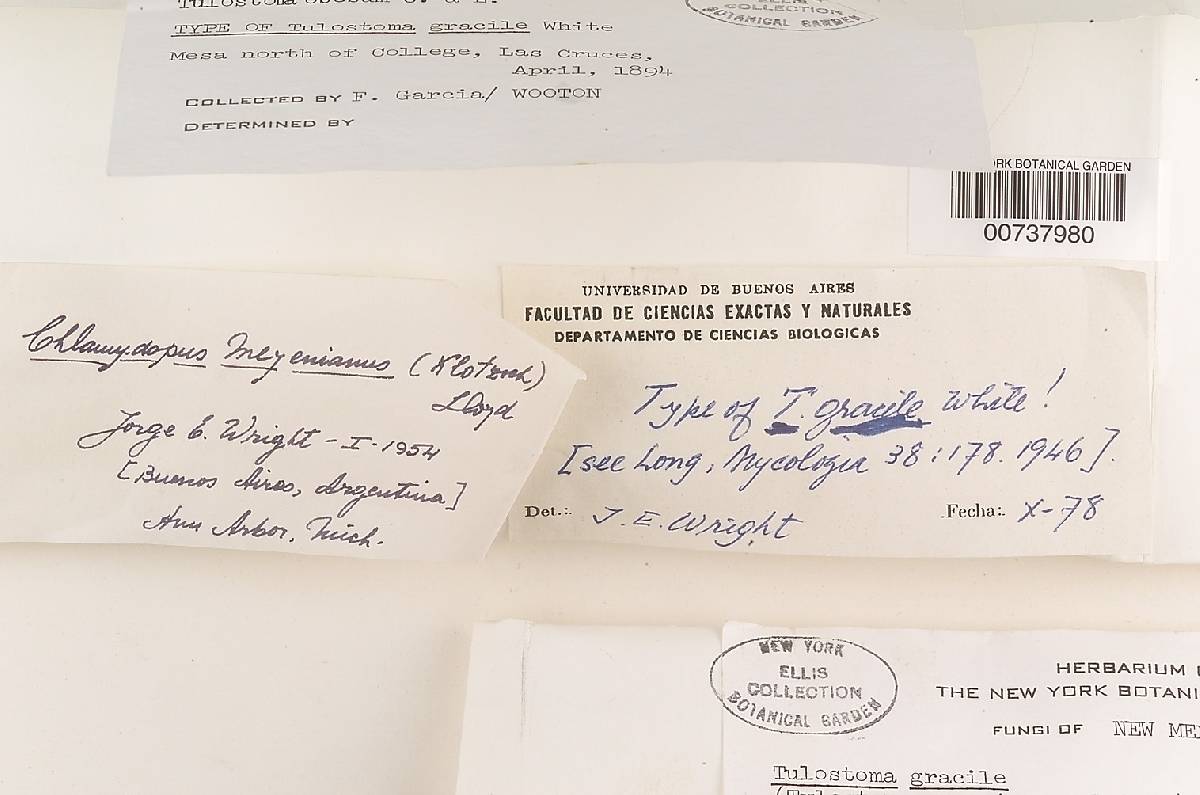 Tulostoma obesum C. & E.
TYPE OF Tulostoma gracile White
Mesa north of College, Las Cruces,
April, 1894
COLLECTED BY F. Garcia/ WOOTON
DETERMINED BY
COLLECTION
BOTANICAL GARDEN
RK BOTANICAL GARDEN
00737980
Chlamydopus Meyenianus (Klotzsch)
Lloyd
Jorge E. Wright - I - 1954
[Buenos Aires, Argentina]
Ann Arbor, Mich.
UNIVERSIDAD DE BUENOS AIRES
FACULTAD DE CIENCIAS EXACTAS Y NATURALES
DEPARTAMENTO DE CIENCIAS BIOLOGICAS
Type of T. gracile White!
[see Long, Mycologia 38:178. 1946].
Det.: J. E. Wright Fecha: X-78
NEW YORK
ELLIS
COLLECTION
BOTANICAL GARDEN
HERBARIUM
THE NEW YORK BOTANI
FUNGI OF NEW ME
Tulostoma gracile